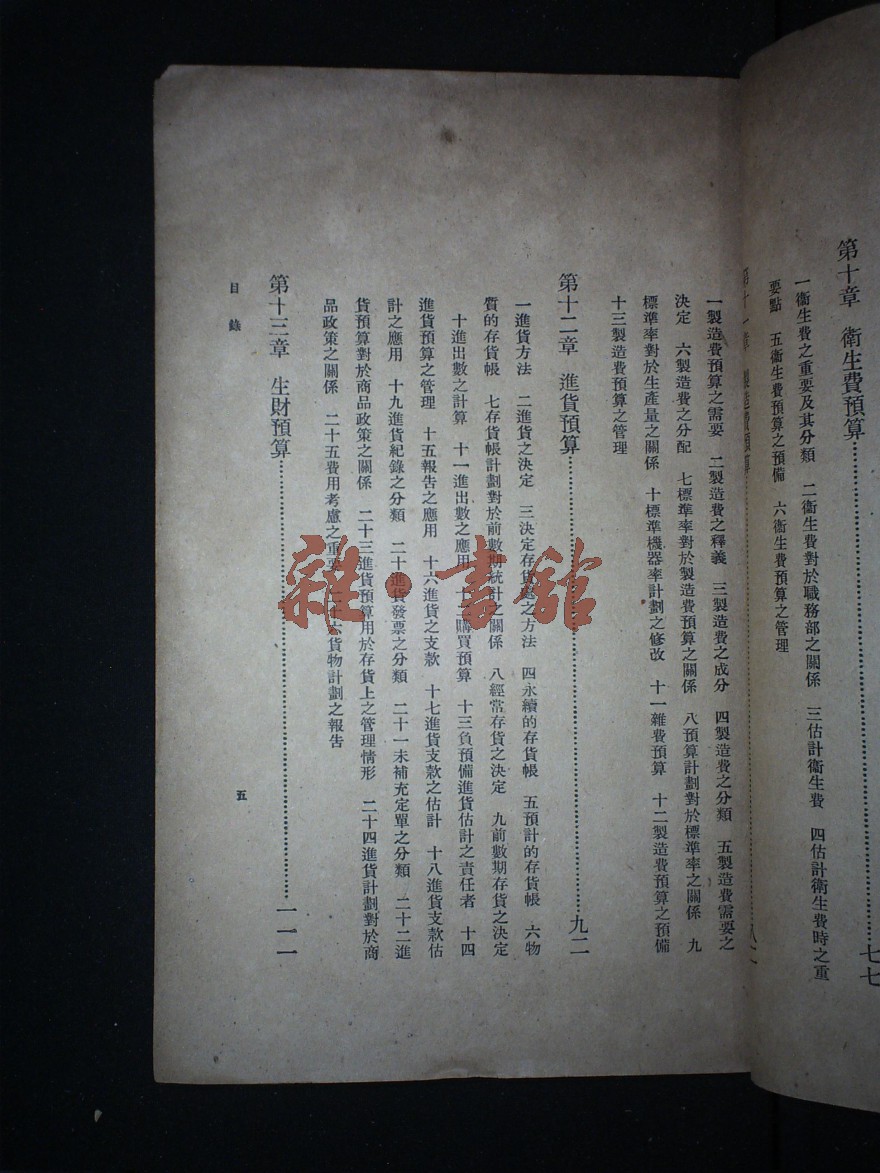 第十章　衛生費預算……七七
一衞生費之重要及其分類　二衞生費對於職務部之關係　三估計衞生費　四估計衞生費時之重
要點　五衞生費預算之預備　六衞生費預算之管理
第十一章　製造費預算
一製造費預算之需要　二製造費之釋義　三製造費之成分　四製造費之分類　五製造費需要之
決定　六製造費之分配　七標準率對於製造費預算之關係　八預算計劃對於標準率之關係　九
標準率對於生產量之關係　十標準機器率計劃之修改　十一雜費預算　十二製造費預算之預備
十三製造費預算之管理
第十二章　進貨預算……九二
一進貨方法　二進貨之決定　三決定存貨之方法　四永續的存貨帳　五預計的存貨帳　六物
質的存貨帳　七存貨帳計劃對於前數期統計之關係　八經常存貨之決定　九前數期存貨之決定
十進出數之計算　十一進出數之應用　十二購買預算　十三負預備進貨估計之責任者　十四
進貨預算之管理　十五報告之應用　十六進貨之支款　十七進貨支款之估計　十八進貨支款估
計之應用　十九進貨紀錄之分類　二十進貨發票之分類　二十一未補充定單之分類　二十二進
貨預算對於商品政策之關係　二十三進貨預算用於存貨上之管理情形　二十四進貨計劃對於商
品政策之關係　二十五費用考慮之重要　二十六貨物計劃之報告
第十三章　生財預算……一一一
目錄
五
雜·書館